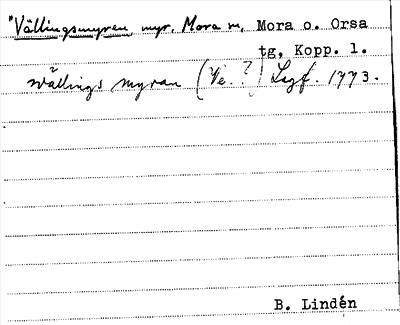 "Vällingsmyren, myr, Mora m, Mora o. Orsa
tg, Kopp. l.
wällings myran (Vé.?) Lagf. 1773.
B. Lindén